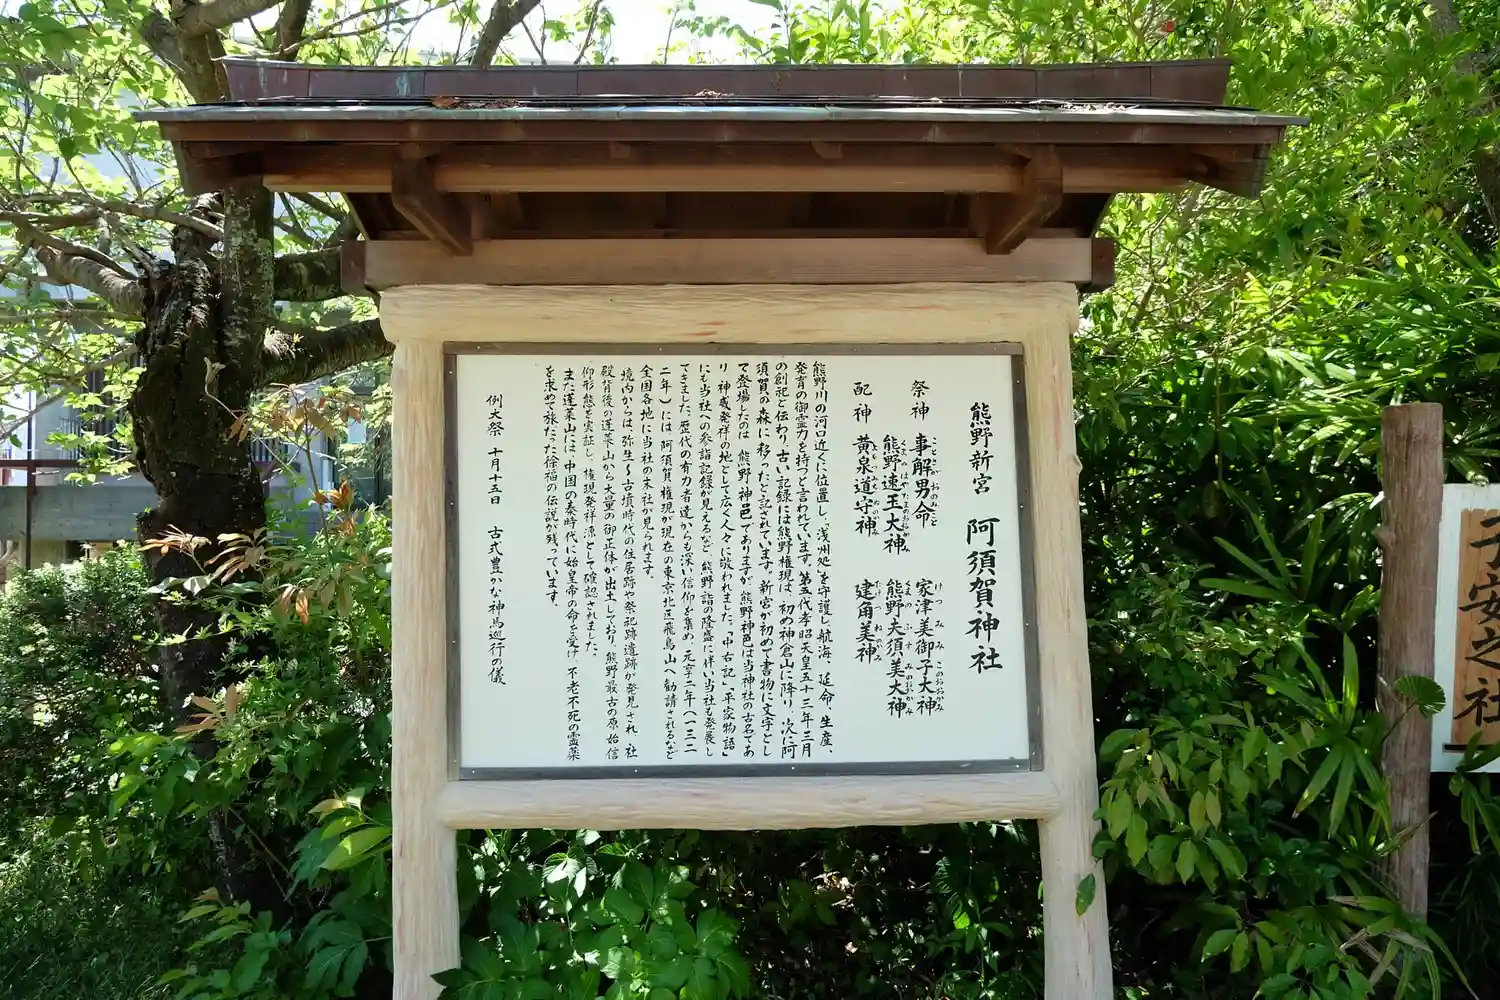 熊野新宮 阿須賀神社
祭神 事解男命 家津美御子大神
熊野速玉大神 熊野夫須美大神
配神 黄泉道守神 建角美神
熊野川の河口近くに位置し、浅州処を守護し、航海、延命、生産、
発育の御霊力を持つと言われています。第五代孝昭天皇五十三年三月
の創祀と伝わり、古い記録には熊野権現は、初め神倉山に降り、次に阿
須賀の森に移ったと記されています。新宮が初めて書物に文字とし
て登場したのは 熊野神邑でありますが 熊野神邑は当神社の古名であ
り 神威発祥の地として広く人々に敬われました。「中右記」「平家物語」
にも当社への参詣記録が見えるなど 熊野詣の隆盛に伴い当社も発展し
てきました。歴代の有力者達からも深い信仰を集め 元亨二年(一三二
二年)には 阿須賀権現が現在の東京北区飛鳥山へ勧請されるなど
全国各地に当社の末社が見られます。
境内からは、弥生〜古墳時代の住居跡や祭祀跡遺跡が発見され 社
殿背後の蓬莱山から大量の御正体が出土しており 熊野最古の原始信
仰形態を実証し、権現発祥源として確認されました。
また蓬莱山には、中国の秦時代に始皇帝の命を受け、不老不死の霊薬
を求めて旅だった徐福の伝説が残っています。
例大祭 十月十五日 古式豊かな神馬巡行の儀
子安之社